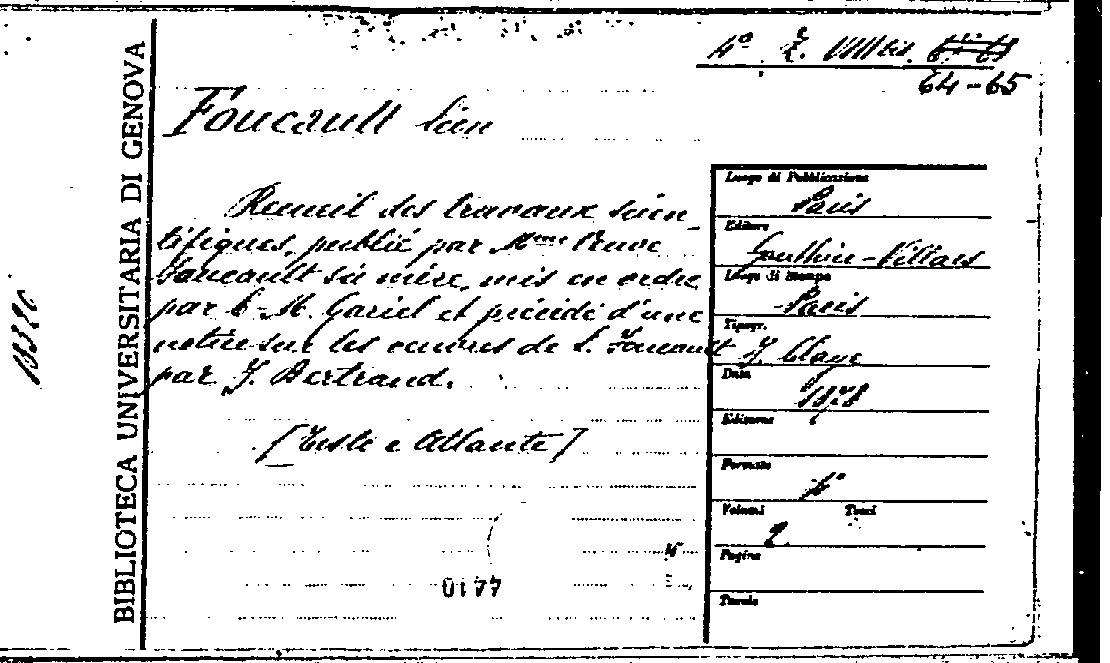 BIBLIOTECA UNIVERSITARIA DI GENOVA
4º Z. VIIIbis.
64-65
Foucault Léon
Recueil des travaux scien_
tifiques, publié par Mme Veuve
Foucault sa mère, mis en ordre
par C-M. Gariel et précédé d'une
notice sur les œuvres de L. Foucault
par J. Bertrand.
[Testo e Atlante]
0177
Luogo di Pubblicazione
Paris
Editore
Gauthier-Villars
Luogo di Stampa
Paris
Tipogr.
J. Claye
Data
1878
Edizione
Formato
4º
Volumi Tomi
2
Pagine
Tavole